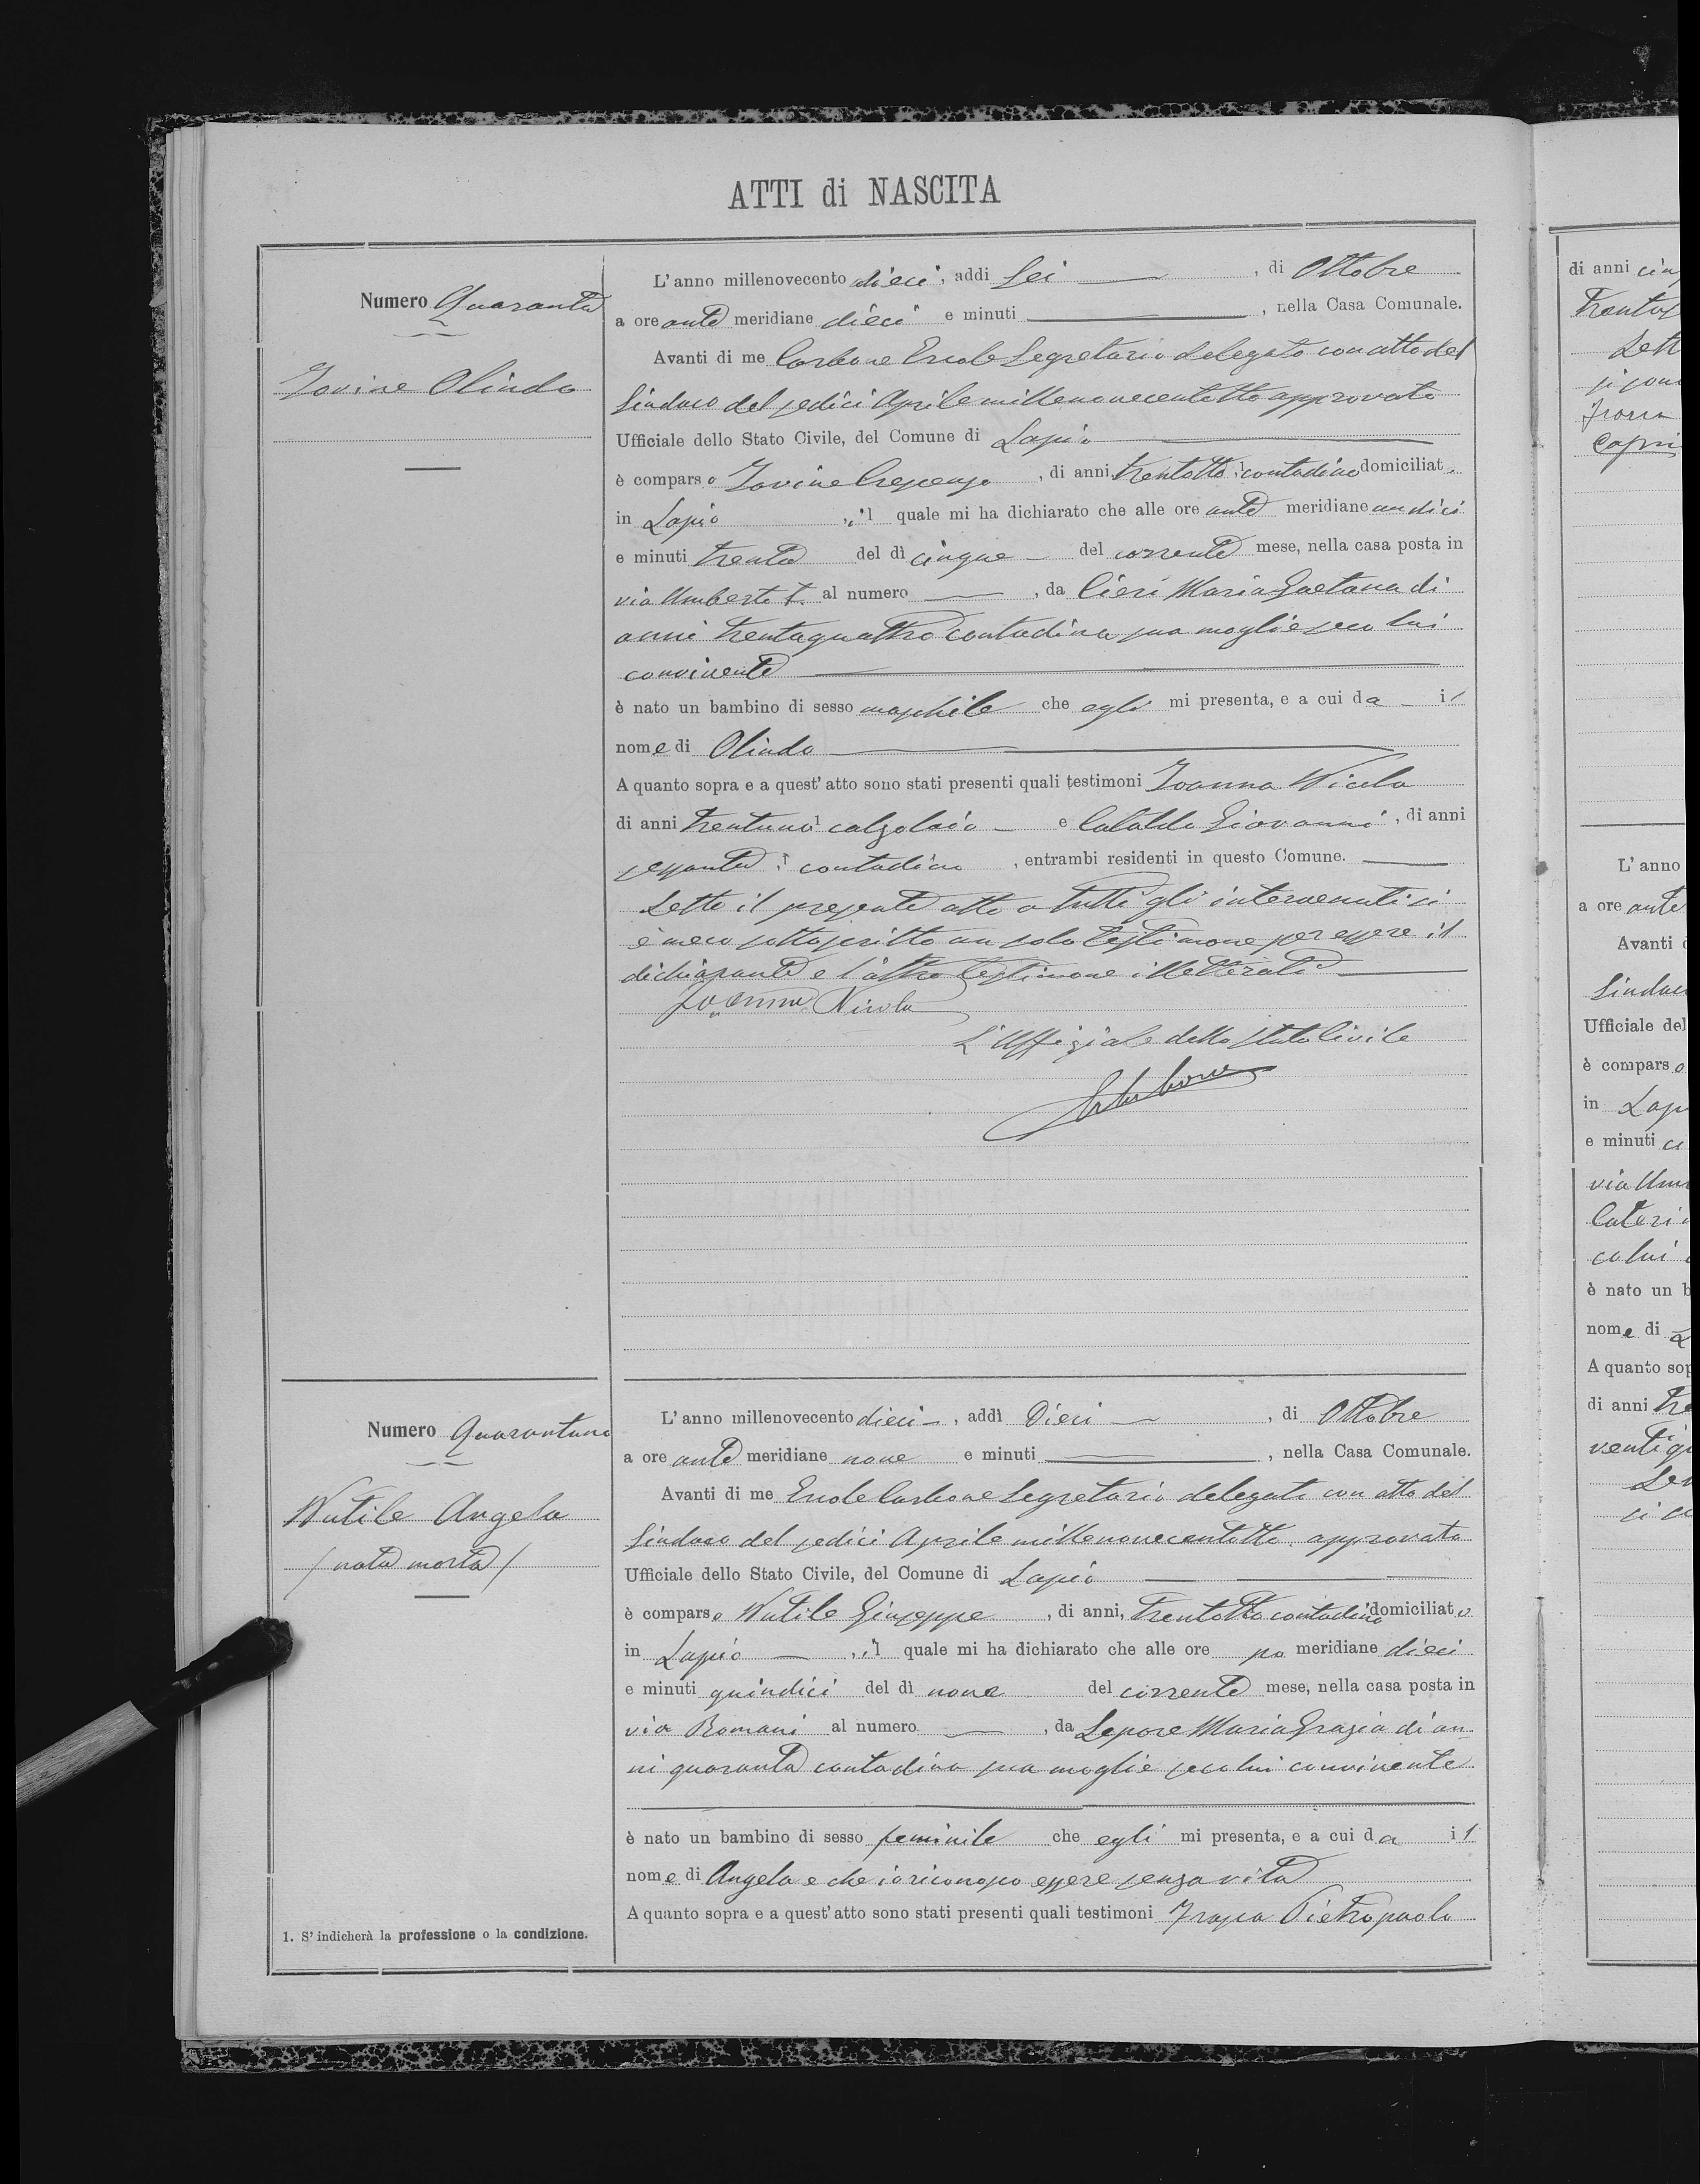 ATTI di NASCITA
Numero Quaranta
Iovine Olindo
L'anno millenovecento dieci, addi Sei, di Ottobre
a ore ante meridiane dieci e minuti, nella Casa Comunale.
Avanti di me Carbone Ercole Segretario delegato con atto del
Sindaco del sedici Aprile millenovecentotto approvato
Ufficiale dello Stato Civile, del Comune di Lapio
è comparso Iovine Crescenzo, di anni trentotto contadino domiciliato
in Lapio, il quale mi ha dichiarato che alle ore ante meridiane undici
e minuti trenta del dì cinque del corrente mese, nella casa posta in
via Umberto I. al numero, da Cieri Maria Gaetana di
anni trentaquattro contadina sua moglie seco lui
convivente
è nato un bambino di sesso maschile che egli mi presenta, e a cui da il
nome di Olindo
A quanto sopra e a quest' atto sono stati presenti quali testimoni Ioanna Nicola
di anni trentuno calzolaio e Cataldo Giovanni, di anni
sessanta contadino, entrambi residenti in questo Comune.
Letto il presente atto a tutti gli intervenuti si
è meco sottoscritto un solo testimone per essere il
dichiarante e l'altro testimone illetterati
Joanna Nicola
L'Uffiziale dello Stato Civile
Numero Quarantuno
Nutile Angela
(nata morta)
L'anno millenovecento dieci, addì Dieci, di Ottobre
a ore ante meridiane nove e minuti, nella Casa Comunale.
Avanti di me Ercole Carbone Segretario delegato con atto del
Sindaco del sedici Aprile millenovecentotto approvato
Ufficiale dello Stato Civile, del Comune di Lapio
è comparso Nutile Giuseppe, di anni, trentotto contadino domiciliato
in Lapio, il quale mi ha dichiarato che alle ore po meridiane dieci
e minuti quindici del dì nove del corrente mese, nella casa posta in
via Romani al numero, da Lepore Maria Grazia di an-
ni quaranta contadina sua moglie seco lui convivente
è nato un bambino di sesso feminile che egli mi presenta, e a cui da il
nome di Angela e che io riconosco essere senza vita
A quanto sopra e a quest' atto sono stati presenti quali testimoni Frasca Pietropaolo
1. S'indicherà la professione o la condizione.
di anni
L'anno
a ore ante
Avanti
Ufficiale del
è comparso
in
e minuti
è nato un
nome di
A quanto
di anni